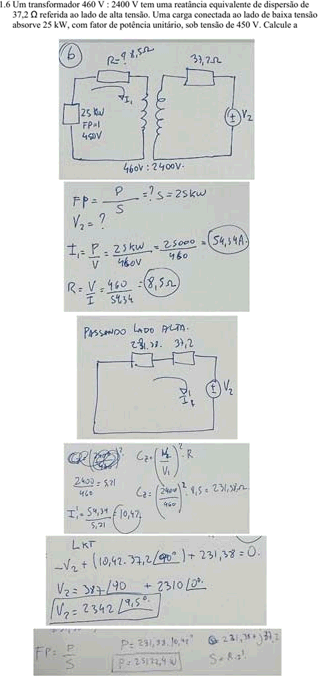 1.6 Um transformador 460 V : 2400 V tem uma reatância equivalente de dispersão de
37,2 Ω referida ao lado de alta tensão. Uma carga conectada ao lado de baixa tensão
absorve 25 kW, com fator de potência unitário, sob tensão de 450 V. Calcule a
b
R=? 8,5Ω
37,2Ω
I1
25 KW
FP=1
450V
V2
460V : 2400V.
FP = P/S =? S = 25kW
V2 = ?
I1 = P/V = 25kW/460V = 25000/460 = 54,34A.
R = V/I = 460/54,34 = 8,5Ω
PASSANDO LADO ALTA.
231.38. 37,2
V2
2400/460 = 5,21
C2 = (2400/460)². 8,5 = 231,38Ω.
I1' = 54,34/5,21 = 10,42
LKT
-V2 + (10,42.37,2/90°) + 231,38 = 0.
V2 = 387/90 + 2310/0°
V2 = 2342/9,5°
FP = P/S